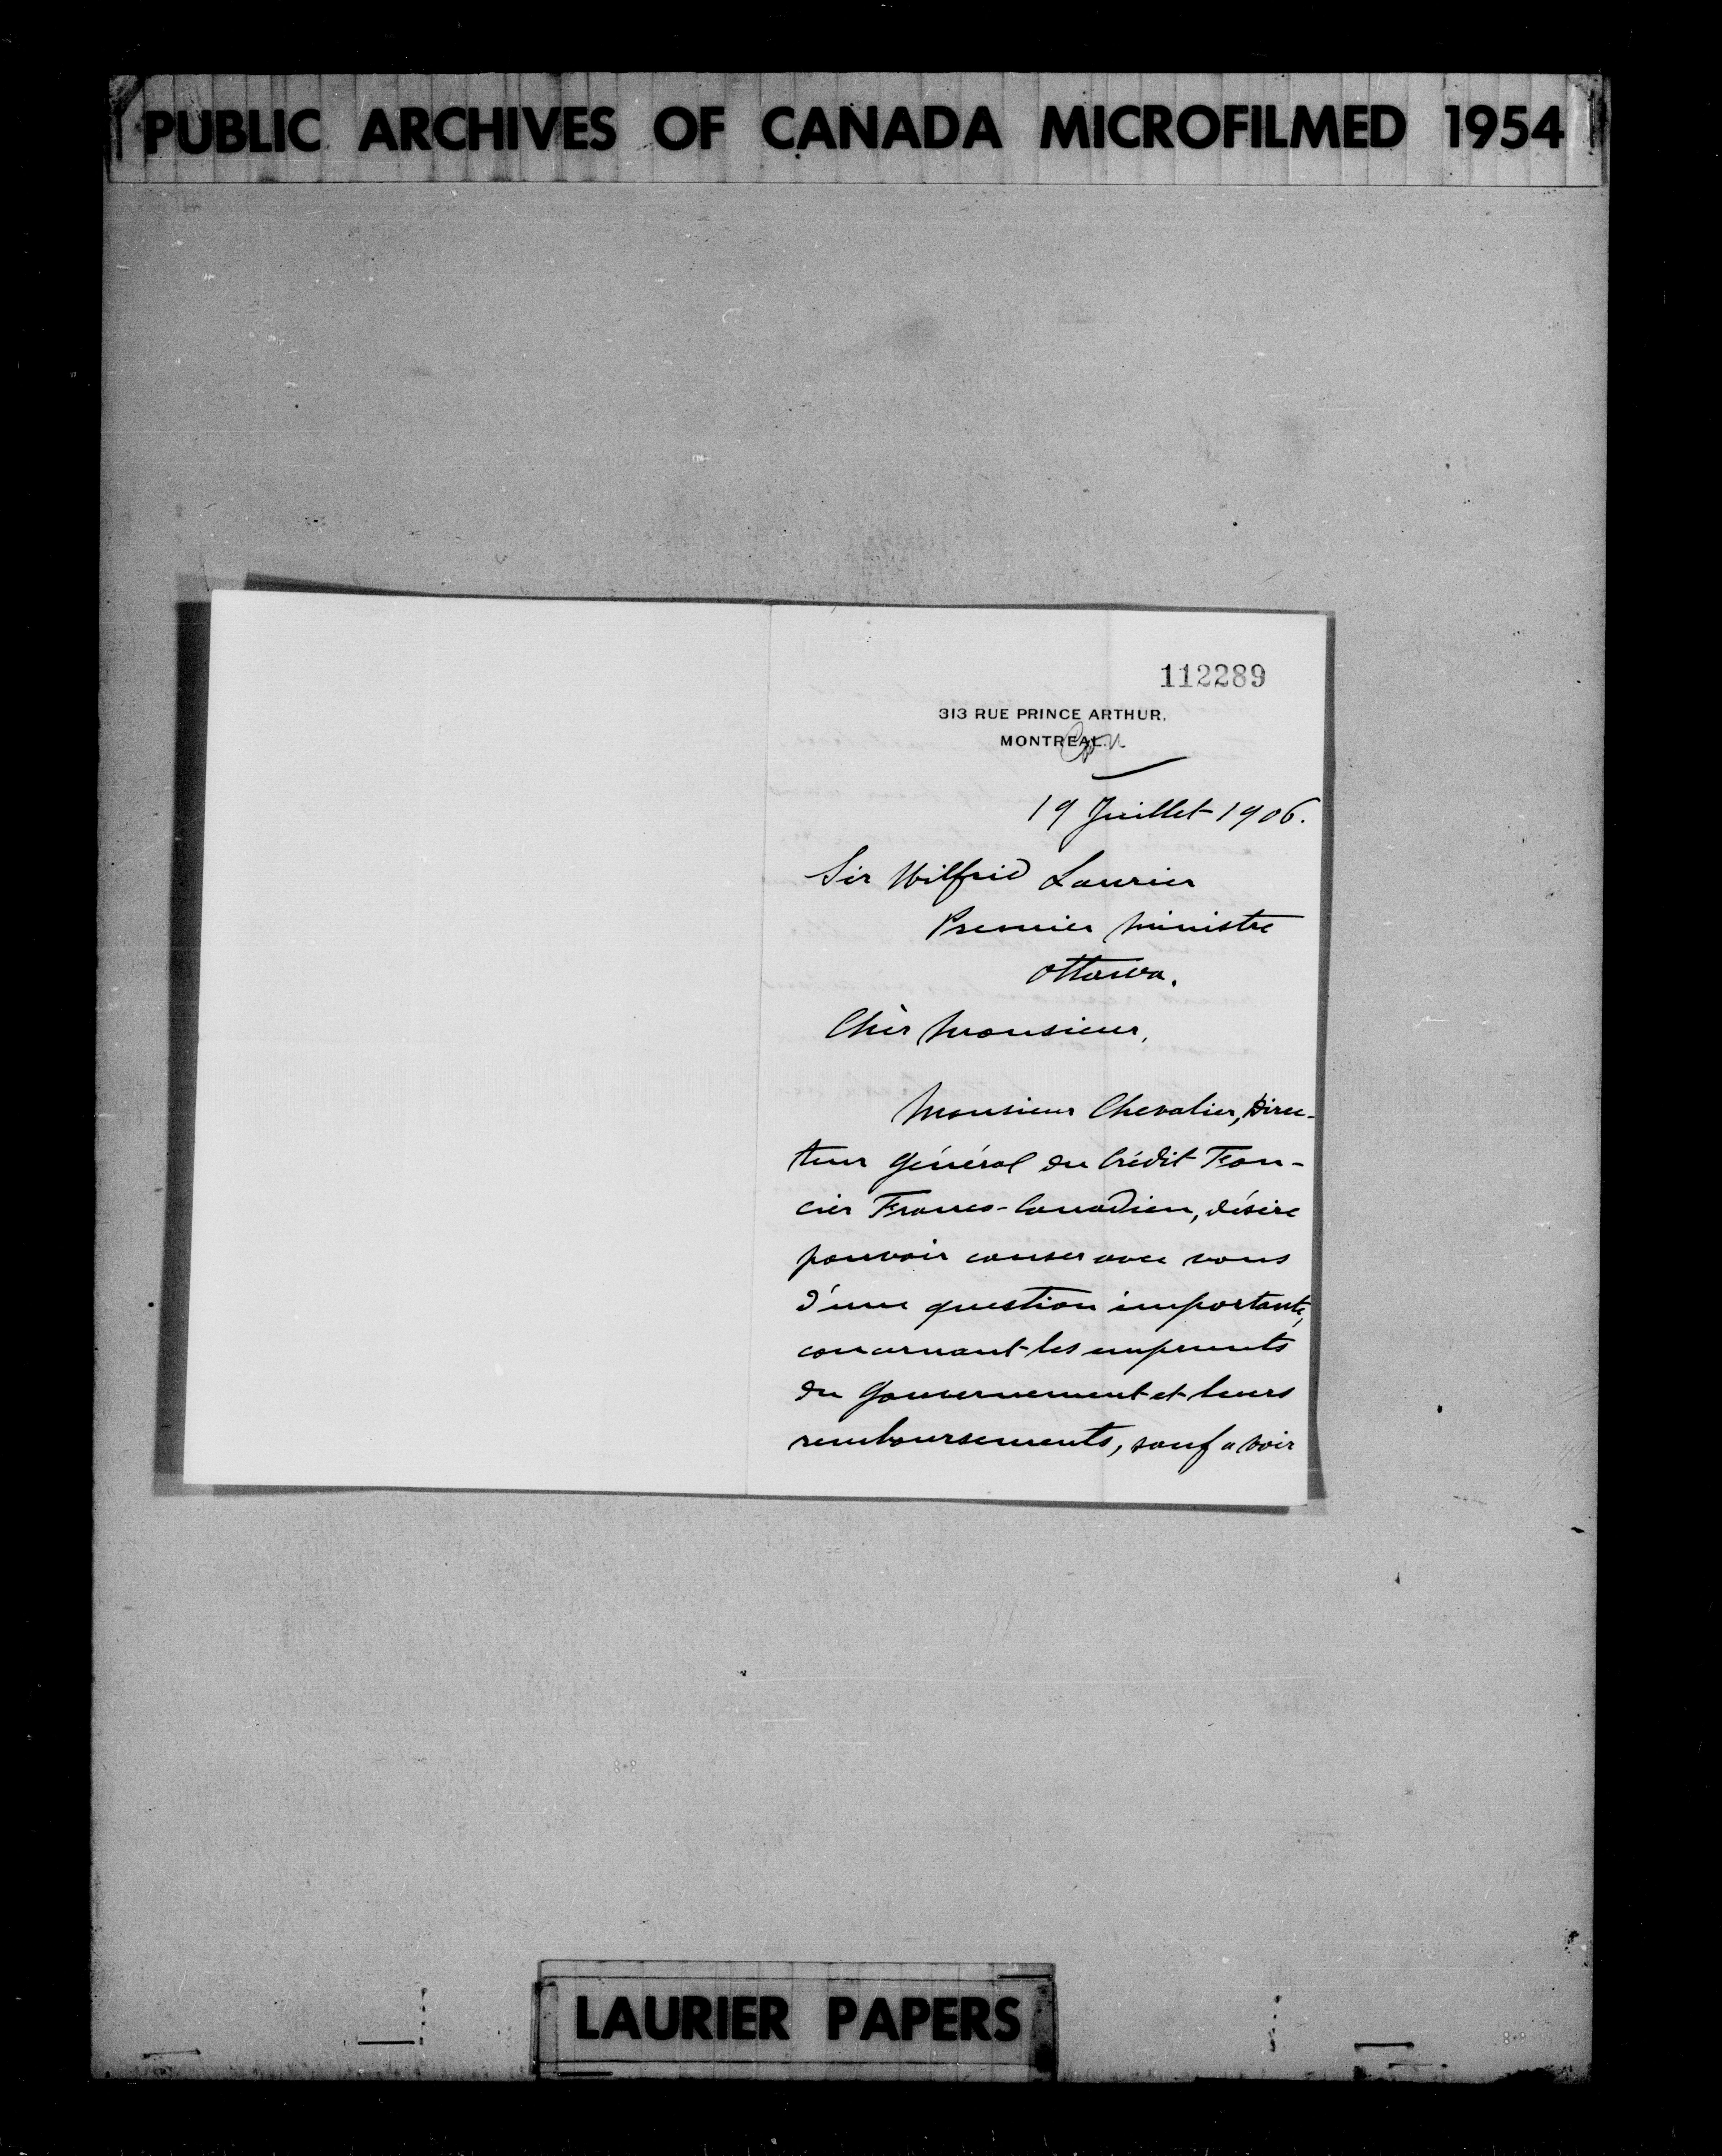 PUBLIC ARCHIVES OF CANADA MICROFILMED 1954
112289
313 RUE PRINCE ARTHUR,
MONTREAL.
19 Juillet 1906.
Sir Wilfrid Laurier
Premier Ministre
Ottawa.
Cher Monsieur,
Monsieur Chevalier, Direc-
teur Général du Crédit Fon-
cier Franco-Canadien, désire
pouvoir causer avec vous
d'une question importante,
concernant les emprunts
du Gouvernement et leurs
remboursements, sauf a voir
LAURIER PAPERS